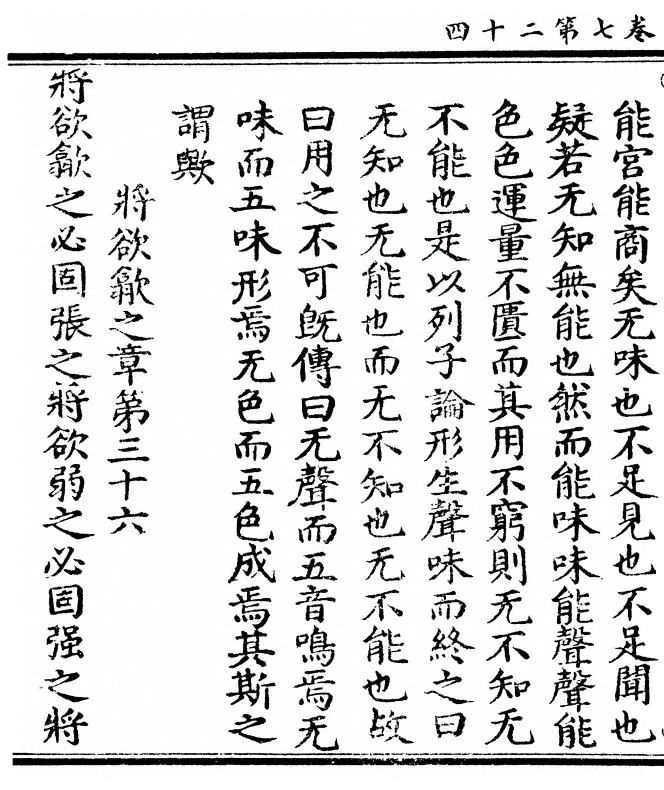 卷七第二十四
能宮能商矣无味也不足見也不足聞也
疑若无知無能也然而能味味能聲聲能
色色運量不匱而其用不窮則无不知无
不能也是以列子論形生聲味而終之曰
无知也无能也而无不知也无不能也故
曰用之不可旣傳曰无聲而五音鳴焉无
味而五味形焉无色而五色成焉其斯之
謂歟
將欲歙之章第三十六
將欲歙之必固張之將欲弱之必固强之將